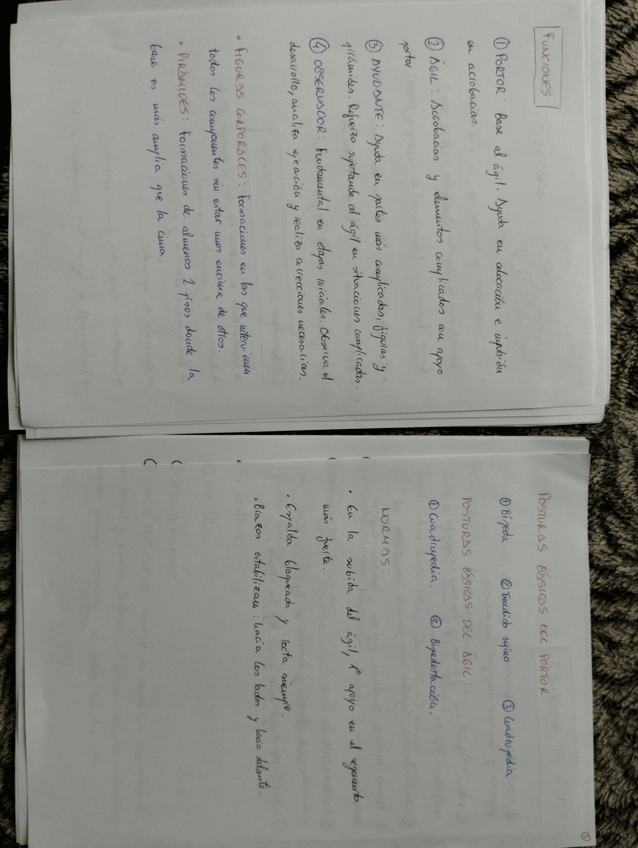 FUNCIONES
① PORTOR: Base al ágil. Ayuda en colocación e impulsión
en acrobacias.
② ÁGIL: Acrobacias y elementos complicados con apoyo
portor
③ AYUDANTE: Ayuda en partes más complicadas, figuras y
pirámides. Refuerzo sujetando al ágil en situaciones complicadas.
④ OBSERVADOR: Fundamental en etapas iniciales. Observa el
desarrollo, analiza ejecución y realiza correcciones necesarias.
• FIGURAS CORPORALES: Formaciones en las que intervienen
todos los componentes sin estar unos encima de otros
• PIRÁMIDES: Formaciones de al menos 2 pisos donde la
base es más amplia que la cima.
POSTURAS BÁSICAS DEL PORTOR:
① Bípeda ② Tendido supino ③ Cuadrupedia
POSTURAS BÁSICAS DEL ÁGIL:
① Cuadrupedia. ② Bipedestación.
NORMAS:
• En la subida del ágil, 1º apoyo en el segmento
más fuerte.
• Espalda bloqueada y recta siempre.
• Brazos estabilizan: hacia los lados y hacia delante.